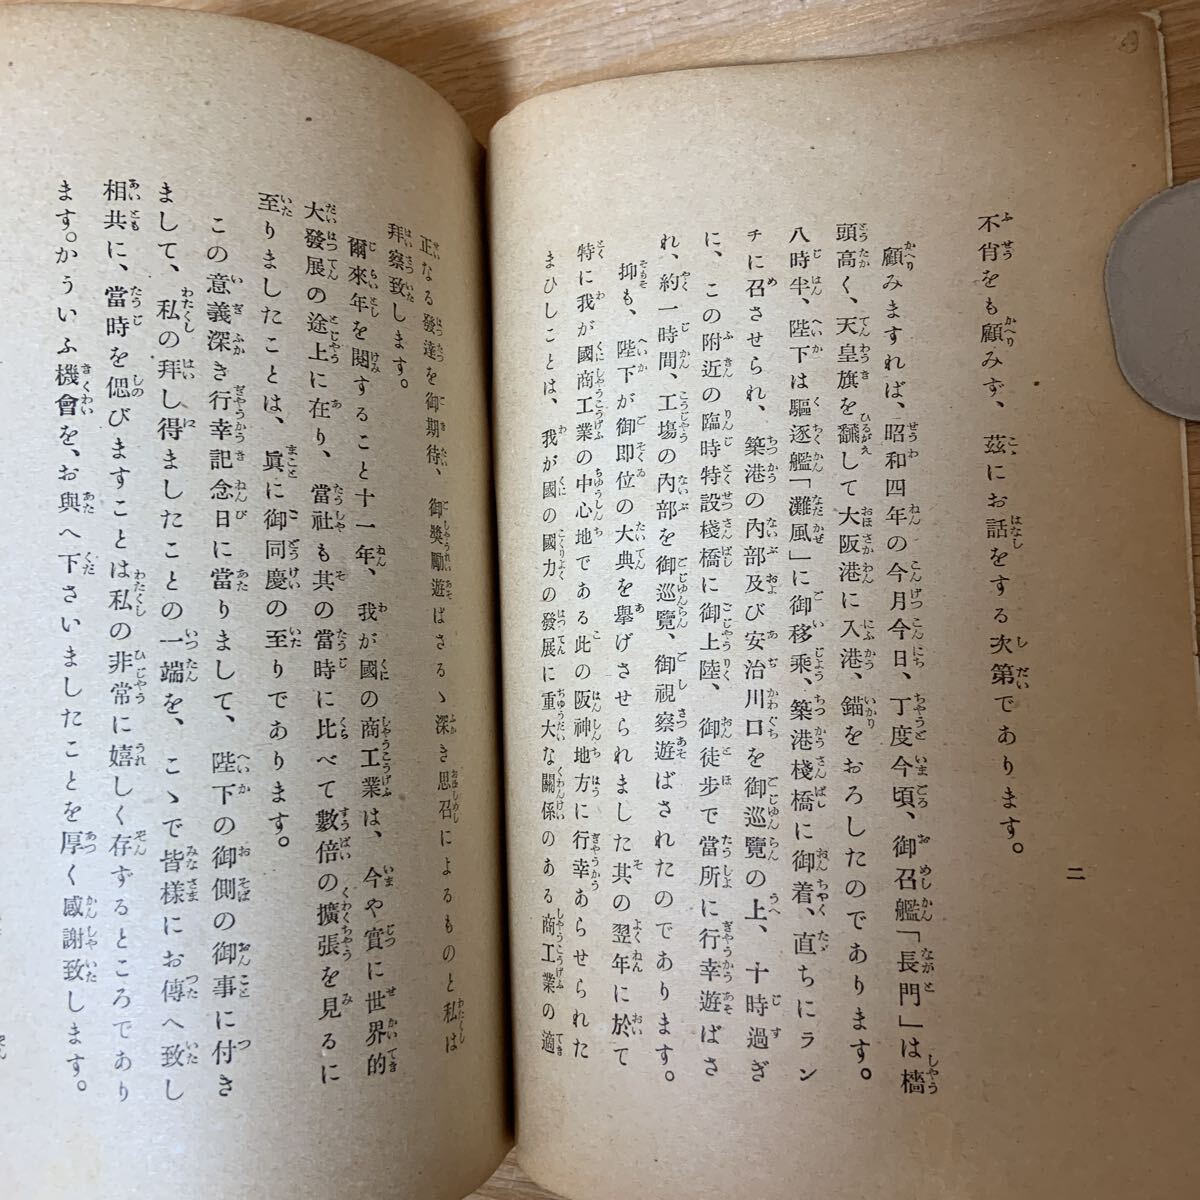 二
不肖をも顧みず、玆にお話をする次第であります。
顧みますれば、昭和四年の今月今日、丁度今頃、御召艦「長門」は檣
頭高く、天皇旗を飜して大阪港に入港、錨をおろしたのであります。
八時半、陛下は驅逐艦「灘風」に御移乘、築港棧橋に御着、直ちにラン
チに召させられ、築港の內部及び安治川口を御巡覽の上、十時過ぎ
に、この附近の臨時特設棧橋に御上陸、御徒步で當所に行幸遊ばさ
れ、約一時間、工塲の內部を御巡覽、御視察遊ばされたのであります。
抑も、陛下が御卽位の大典を擧げさせられました其の翌年に於て
特に我が國商工業の中心地である此の阪神地方に行幸あらせられた
まひしことは、我が國の國力の發展に重大な關係のある商工業の適
正なる發達を御期待、御奬勵遊ばさるゝ深き思召によるものと私は
拜察致します。
爾來年を閱すること十一年、我が國の商工業は、今や實に世界的
大發展の途上に在り、當社も其の當時に比べて數倍の擴張を見るに
至りましたことは、眞に御同慶の至りであります。
この意義深き行幸記念日に當りまして、陛下の御側の御事に付き
まして、私の拜し得ましたことの一端を、こゝで皆樣にお傳へ致し
相共に、當時を偲びますことは私の非常に嬉しく存ずるところであり
ます。かういふ機會を、お與へ下さいましたことを厚く感謝致します。